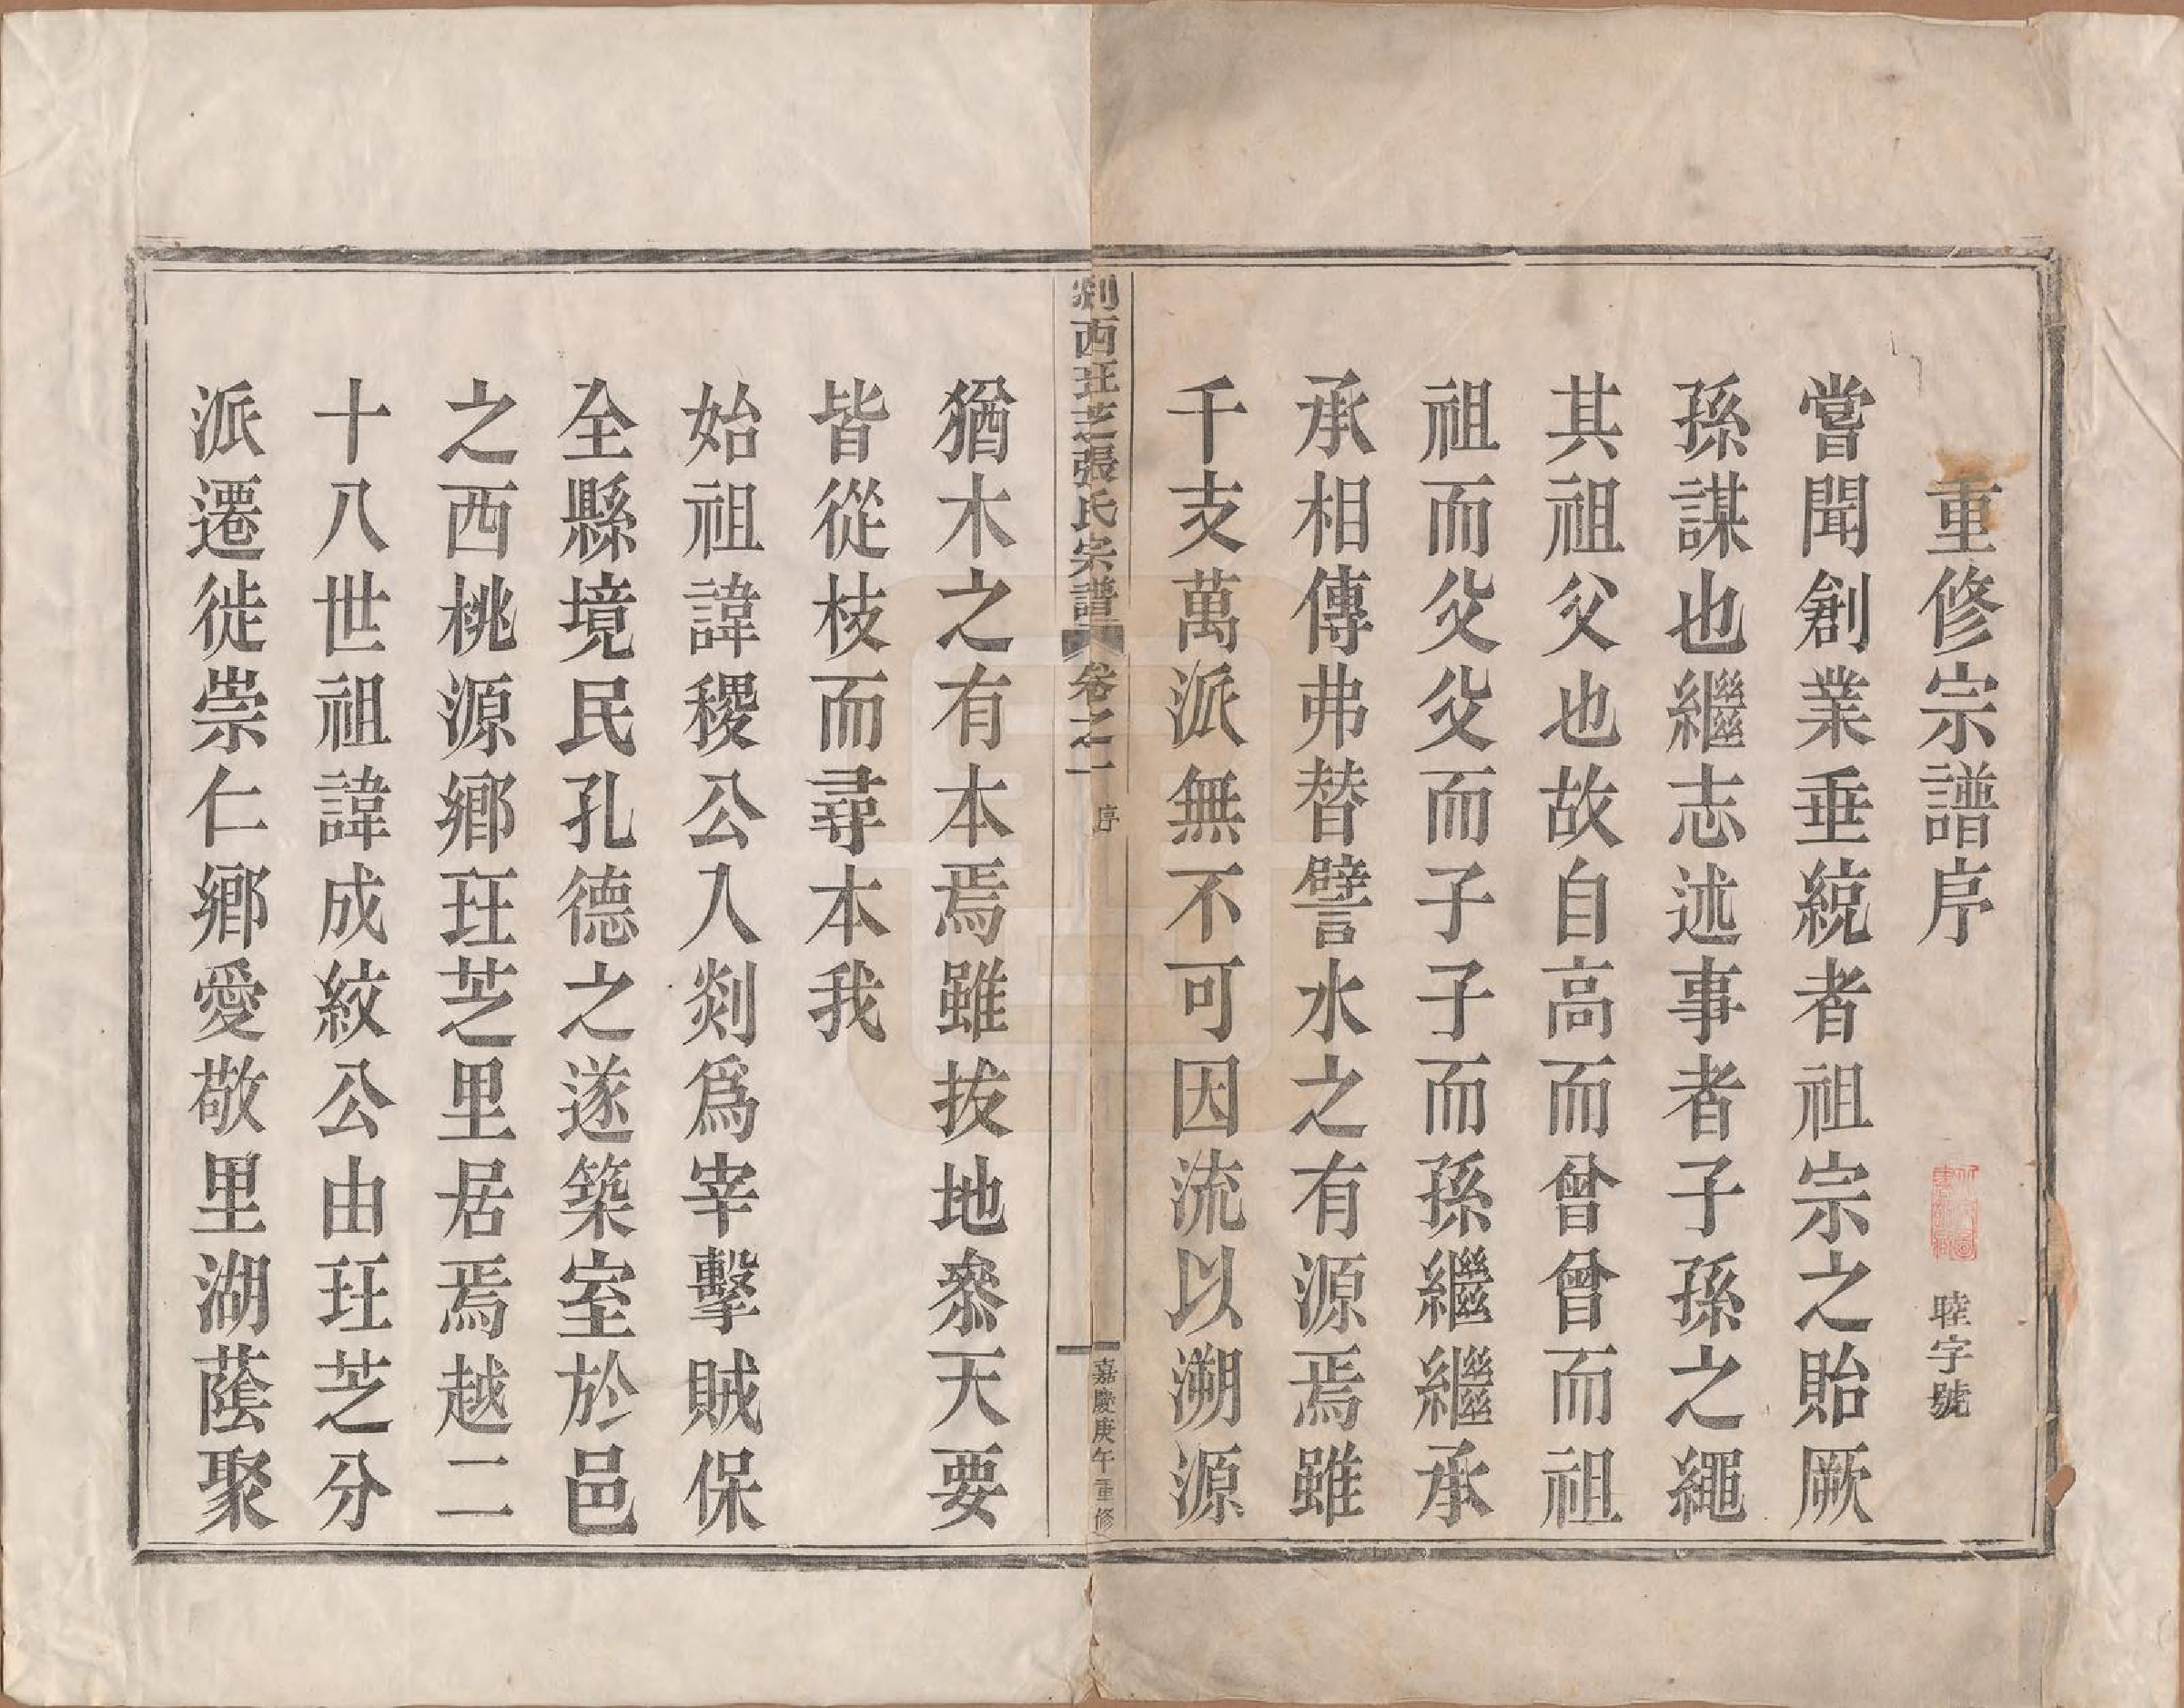 重修宗譜序
睦字號
嘗聞創業垂統者祖宗之貽厥
孫謀也繼志述事者子孫之繩
其祖父也故自高而曾曾而祖
祖而父父而子子而孫繼繼承
承相傳弗替譬水之有源焉雖
千支萬派無不可因流以溯源
剡西珏芝張氏宗譜 卷之一 序 一 嘉慶庚午重修
猶木之有本焉雖拔地叅天要
皆從枝而尋本我
始祖諱稷公入剡爲宰擊賊保
全縣境民孔德之遂築室於邑
之西桃源鄉珏芝里居焉越二
十八世祖諱成紋公由珏芝分
派遷徙崇仁鄉愛敬里湖蔭聚